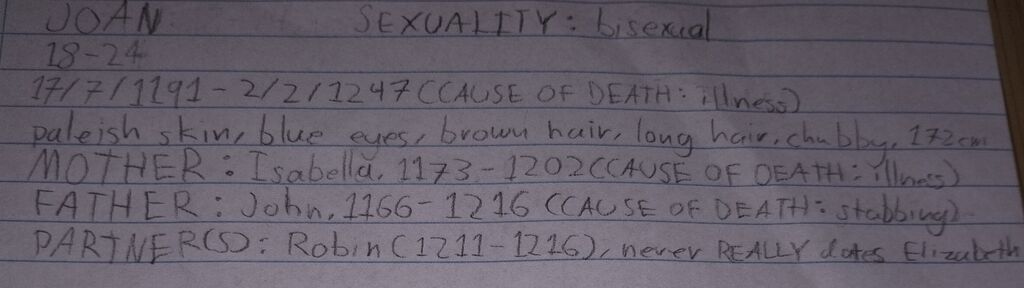 JOAN SEXUALITY: bisexual
18-24
17/7/1191 - 2/2/1247 (CAUSE OF DEATH: illness)
paleish skin, blue eyes, brown hair, long hair, chubby, 172cm
MOTHER: Isabella, 1173 - 1202 (CAUSE OF DEATH: illness)
FATHER: John, 1166 - 1216 (CAUSE OF DEATH: stabbing)
PARTNER(S): Robin (1211-1216), never REALLY dates Elizabeth